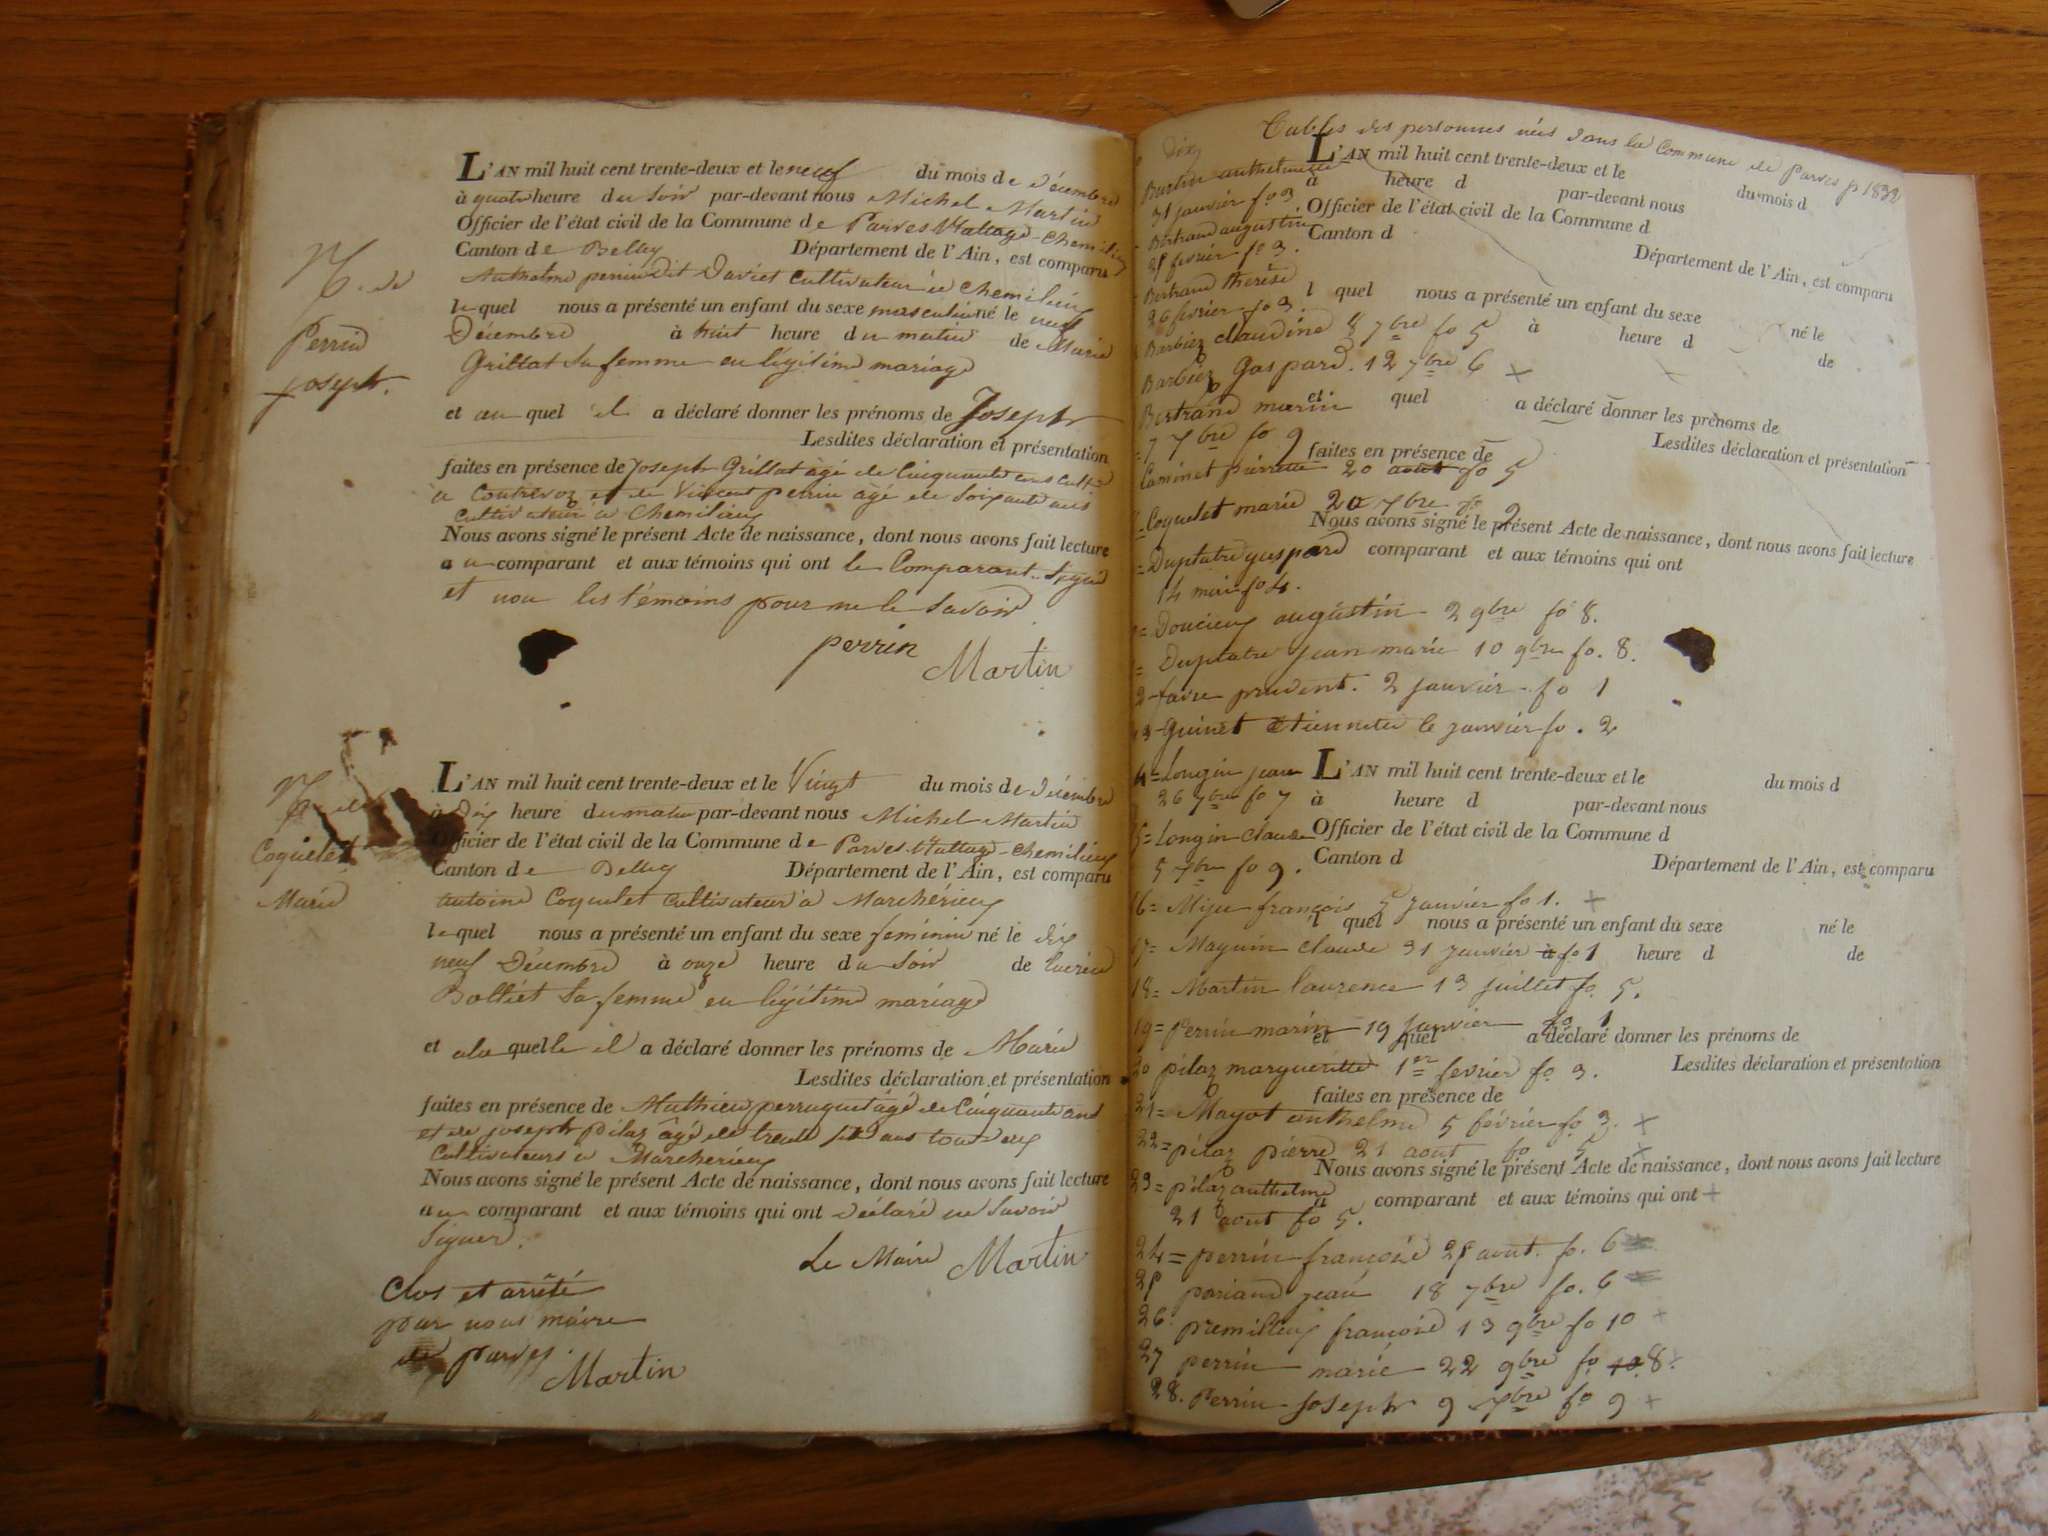 L'AN mil huit cent trente-deux et le neuf du mois de Décembre
à quatre heure du Soir par-devant nous Michel Martin
Officier de l'état civil de la Commune de Parves Nattage-Chemilieu
Canton de Belley Département de l'Ain, est comparu
Anthelme perrin dit Daviet Cultivateur à Chemilieu
lequel nous a présenté un enfant du sexe masculin né le neuf
Décembre à huit heure du matin de Marie
Grillat Sa femme en légitime mariage
et au quel il a déclaré donner les prénoms de Joseph
Lesdites déclaration et présentation
faites en présence de Joseph Grillat âgé de Cinquante ans cult
a Contrevoz et de Vincent perrin âgé de Soixante ans
Cultivateur a Chemilieu
Nous avons signé le présent Acte de naissance, dont nous avons fait lecture
au comparant et aux témoins qui ont le Comparant Signé
et non les témoins pour ne le Savoir
perrin
Martin
N. de
Perrin
Joseph.
L'AN mil huit cent trente-deux et le Vingt du mois de Décembre
à Dix heure du matin par-devant nous Michel Martin
Officier de l'état civil de la Commune de Parves Nattage-Chemilieu
Canton de Belley Département de l'Ain, est comparu
Antoine Coquelet Cultivateur à Marchérieu
lequel nous a présenté un enfant du sexe féminin né le dix
neuf Décembre à onze heure du Soir de
Bolliet Sa femme en légitime mariage
et a la quelle il a déclaré donner les prénoms de Marie
Lesdites déclaration et présentation
faites en présence de Mathieu perruquet âgé de Cinquante ans
et de joseph pilaz âgé de trente ans tous deux
Cultivateurs a Marcherieu
Nous avons signé le présent Acte de naissance, dont nous avons fait lecture
au comparant et aux témoins qui ont déclaré ne Savoir
Signer.
Le Maire Martin
N. de
Coquelet
Marie
Clos et arrêté
par nous maire
de parves.
Martin
Tables des personnes nées dans la Commune de Parves p 1832
L'AN mil huit cent trente-deux et le du mois d
à heure d par-devant nous
Officier de l'état civil de la Commune d
Canton d Département de l'Ain, est comparu
l quel nous a présenté un enfant du sexe né le
à heure d de
et quel a déclaré donner les prénoms de
Lesdites déclaration et présentation
faites en présence de
Nous avons signé le présent Acte de naissance, dont nous avons fait lecture
comparant et aux témoins qui ont
31 janvier fo 3.
Bertrand augustin
28 fevrier fo 3.
Bertrand therese
26 fevrier fo 3.
Barbiez claudine 8 7bre fo 5
Barbiez Gaspard. 12 7bre 6 +
Bertrand marin
7 7bre fo 9
Caminet pierrette 20 aout fo 5
Coquelet marie 20 7bre fo 9
= Duplatre gaspard
14 mai fo 4.
= Doucieux augustin 2 9bre fo 8.
= Duplatre jean marie 10 9bre fo. 8.
2- favre prudent. 2 janvier - fo 1
13- Guinet Etiennette le janvier fo. 2
4= Longin jean
26 7bre fo 7
5= Longin claude
5 7bre fo 9.
L'AN mil huit cent trente-deux et le du mois d
à heure d par-devant nous
Officier de l'état civil de la Commune d
Canton d Département de l'Ain, est comparu
16= Miju françois 5 janvier fo 1. +
l quel nous a présenté un enfant du sexe né le
17= Maguin claude 31 janvier fo 1
à heure d de
18= Martin laurence 13 juillet fo. 5.
19= Perrin marin 19 janvier fo 1
et quel a déclaré donner les prénoms de
20 pilaz margueritte 1er fevrier fo 3.
Lesdites déclaration et présentation
faites en présence de
21= Mayot anthelme 5 février fo 3. +
22= pilaz pierre 21 aout fo 5 +
Nous avons signé le présent Acte de naissance, dont nous avons fait lecture
23= pilaz anthelme
comparant et aux témoins qui ont +
21 aout fo 5.
24= perrin françoise 28 aout. fo. 6
25 pariand jean 18 7bre fo. 6
26. premillieux françoise 13 9bre fo 10 +
27 perrin marie 22 9bre fo 10 8. +
28. Perrin Joseph 9 7bre fo 9 +